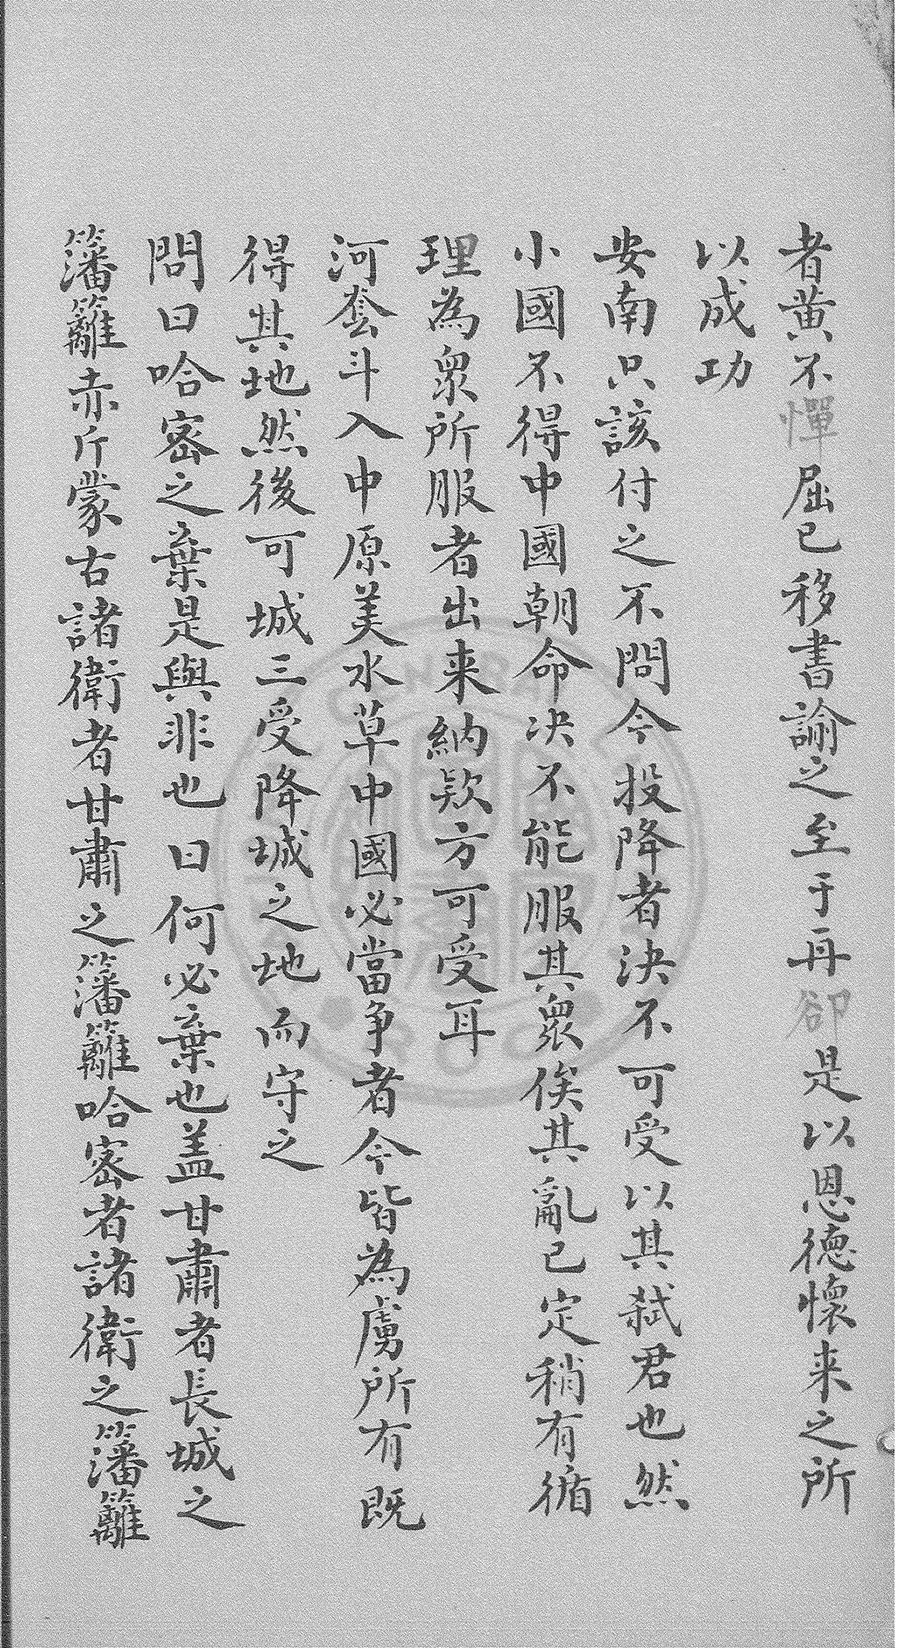 者黄不憚屈已移書諭之至于再卻是以恩徳懷来之所
以成功
安南只該付之不問今投降者決不可受以其弑君也然
小國不得中國朝命決不能服其衆俟其亂已定稍有循
理為衆所服者出来納欵方可受耳
河套斗入中原美水草中國必當争者今皆為虜所有既
得其地然後可城三受降城之地而守之
問曰哈宻之棄是與非也曰何必棄也盖甘肅者長城之
籓籬赤斤蒙古諸衛者甘肅之籓籬哈宻者諸衛之籓籬
CENTRAL
ROC